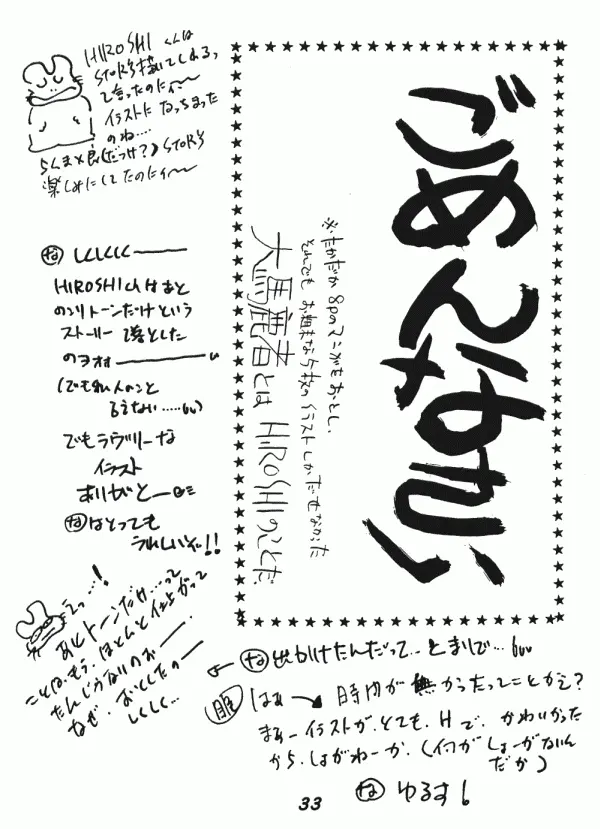 HIROSHI くんは
STORY描いてしめる、
て言ったのにィ〜
イラストに なっちまった
のね‥‥
らくまメ良(だっけ?) STORY
楽しみにしてたのにィ〜
ごめんなさい
※たかだか 8pのマンガもおとし、
それでも お粗末な5枚の イラスト しかだせなかった
大馬鹿者とは HIROSHIのことだ
な しくしくしく―
HIROSHIくんは あと
のこりトーンだけという
ストーリーで落とした
のヲォォ―
(でも 人のこと
言えない‥‥‥)
でもラヴリーな
イラスト
ありがとー
なはとっても
うれしいぞ!!
えっ‥‥!
あとトーンだけ‥‥って
ことは、もう、ほとんど仕上がって
たんじゃないのぉー
なぜ、おとしたの―
しくしく‥‥
← な 出かけたんだって‥とまりで‥
はぁ → 時間が無かったってことかえ?
まあーイラストが、とても、Hで、かわいかった
から、しょがねーか、( しょーがないん
だか)
な ゆるす
33